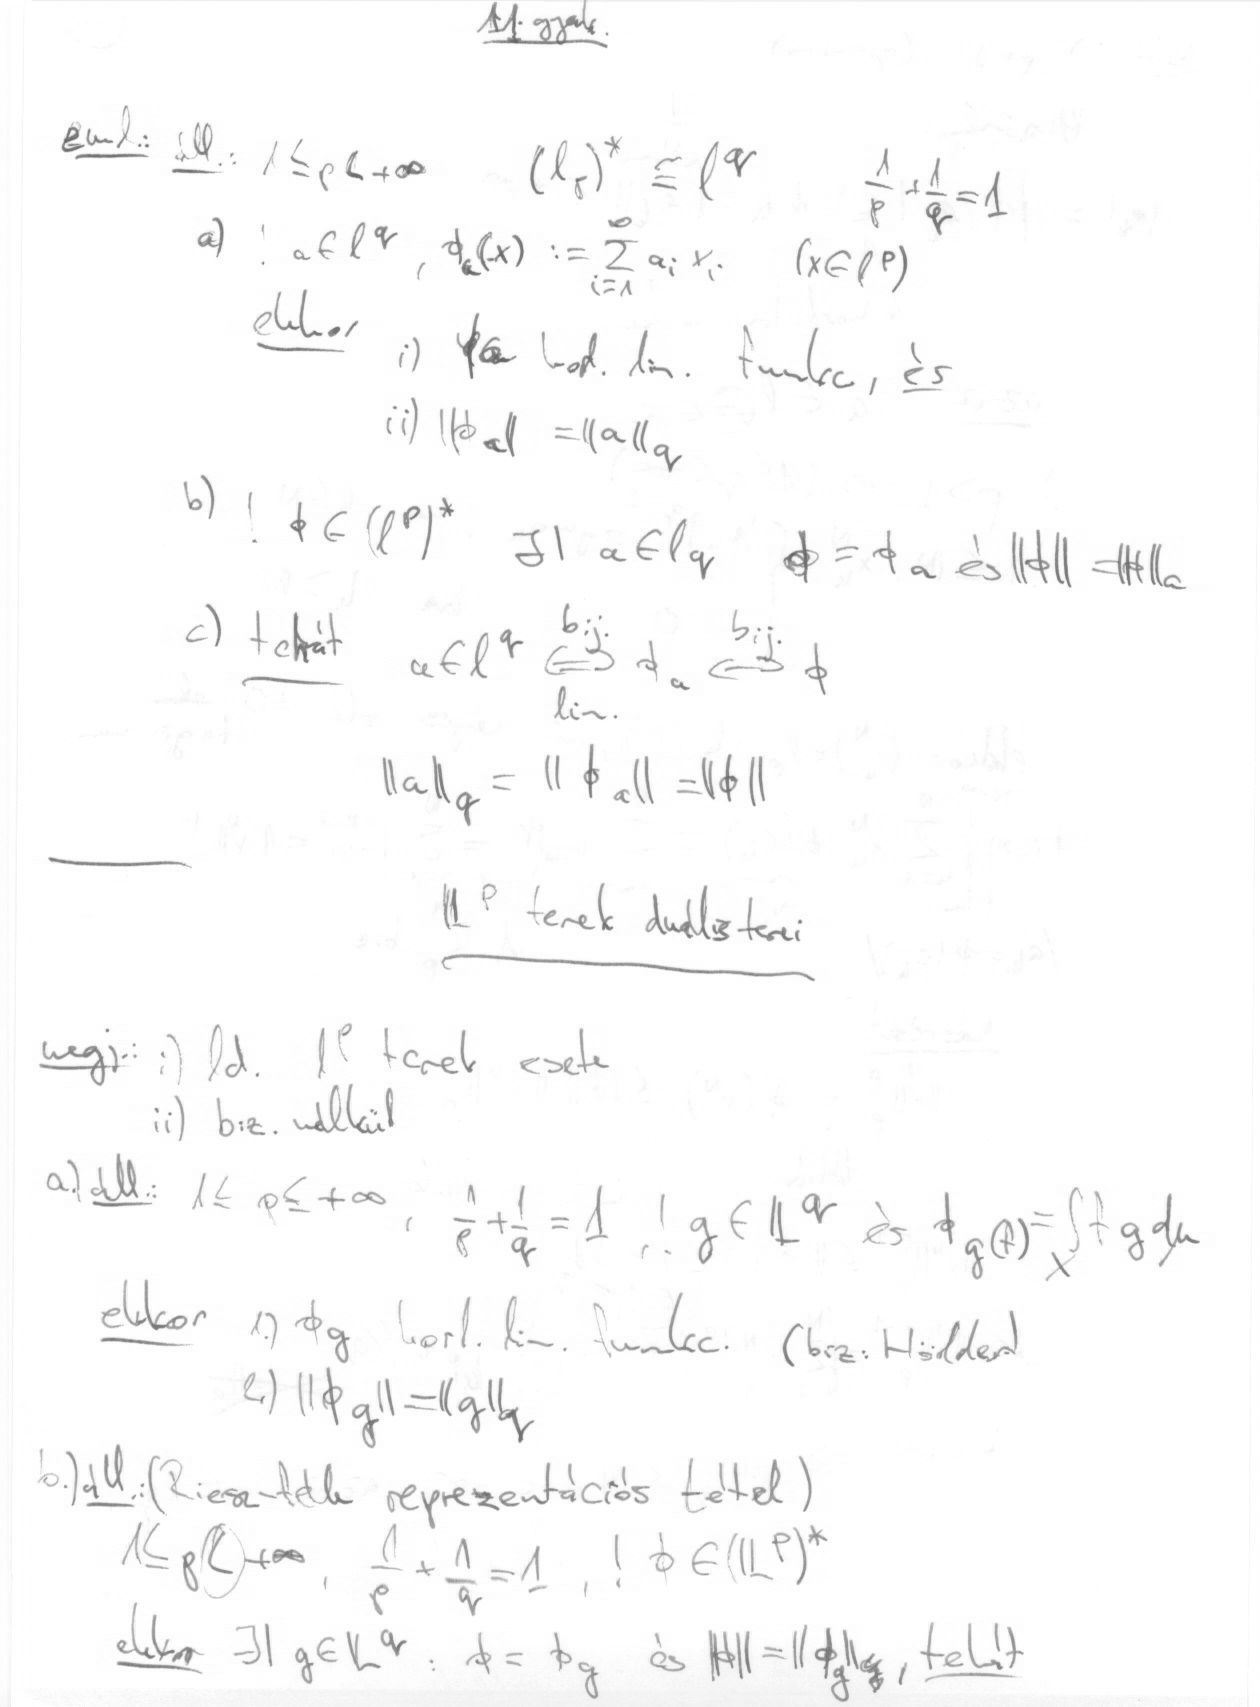 11. gyak.
eml.: áll.: 1 ≤ p < +∞ (l_p)* ≅ l^q 1/p + 1/q = 1
a) ! a ∈ l^q, ϕ_a(x) := Σ_{i=1}^∞ a_i x_i (x ∈ l^p)
ekkor i) ϕ_a korl. lin. funkc, és
ii) ||ϕ_a|| = ||a||_q
b) ! ϕ ∈ (l^p)* ∃| a ∈ l_q ϕ = ϕ_a és ||ϕ|| =
c) tehát a ∈ l^q ⟺ ϕ_a ⟺ ϕ
bij. bij.
lin.
||a||_q = ||ϕ_a|| = ||ϕ||
𝕃^p terek duális terei
megj.: i) ld. l^p terek esete
ii) biz. nélkül
a.) áll.: 1 ≤ p ≤ +∞, 1/p + 1/q = 1, ! g ∈ 𝕃^q és ϕ_g(f) = ∫_X f g dμ
ekkor 1.) ϕ_g korl. lin. funkc. (biz.: Hölder)
2.) ||ϕ_g|| = ||g||_q
b.) áll.: (Riesz-féle reprezentációs tétel)
1 ≤ p < +∞, 1/p + 1/q = 1, ! ϕ ∈ (𝕃^p)*
ekkor ∃| g ∈ 𝕃^q : ϕ = ϕ_g és ||ϕ|| = ||ϕ_g||, tehát